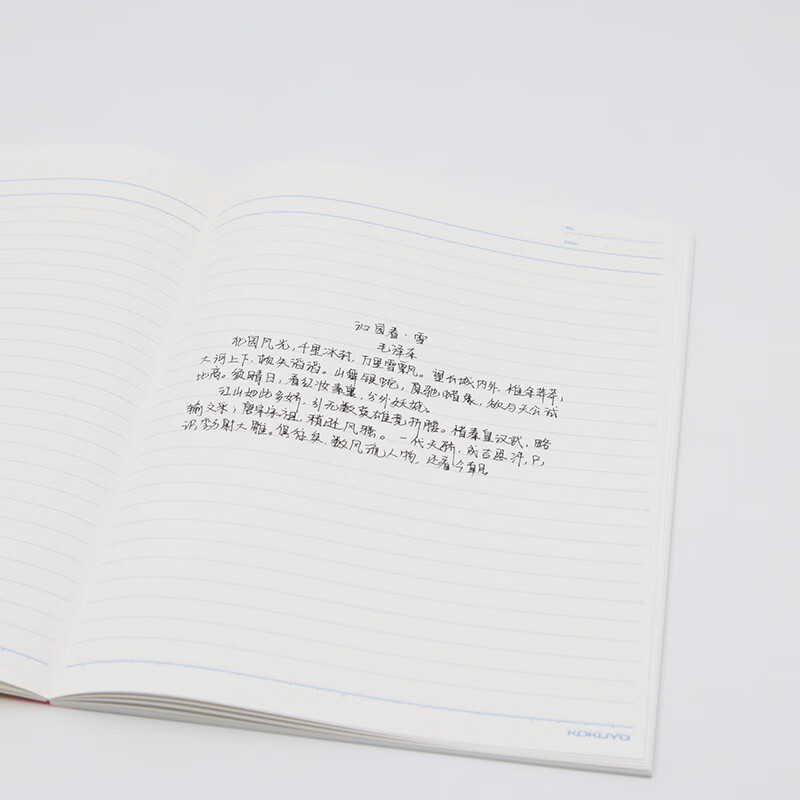 No.
Date
沁园春·雪
毛泽东
北国风光，千里冰封，万里雪飘。望长城内外，惟余莽莽；
大河上下，顿失滔滔。山舞银蛇，原驰蜡象，欲与天公试
比高。须晴日，看红妆素裹，分外妖娆。
江山如此多娇，引无数英雄竞折腰。惜秦皇汉武，略
输文采；唐宗宋祖，稍逊风骚。一代天骄，成吉思汗，只
识弯弓射大雕。俱往矣，数风流人物，还看今朝。
KOKUYO